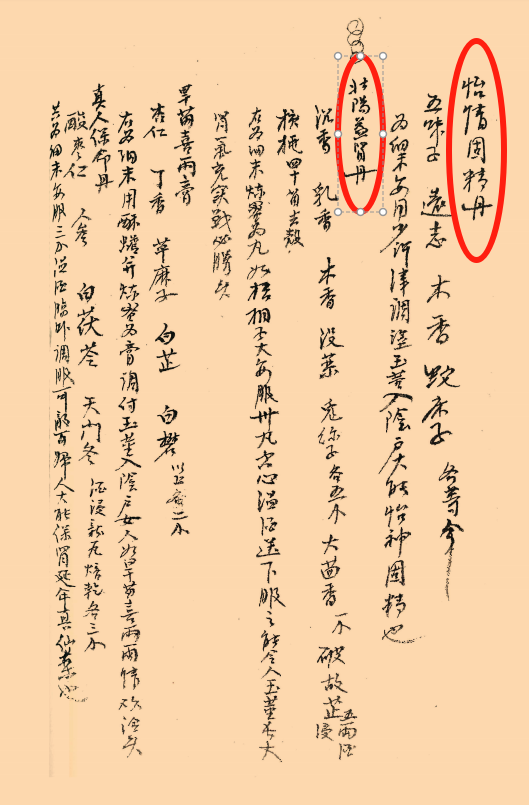 怡情固精丹
五味子 遠志 木香 蛇床子 各等分
為細末每用少許津調塗玉莖入陰戶大能怡神固精也
壯陽益腎丹
沉香 乳香 木香 沒藥 兔絲子各五分 大茴香一分 破故芷五兩酒浸
核桃四十箇去殼
右為細末煉蜜為丸如梧桐子大每服卅丸空心溫酒送下服之能令人玉莖長大
腎氣充實戰必勝矣
旱苗喜雨膏
杏仁 丁香 草麻子 白芷 白礬 以上各二分
右為細末用酥蟾并煉蜜為膏調付玉莖入陰戶女人如旱苗喜雨兩情欢洽矣
真人保命丹
酸棗仁 人參 白茯苓 天門冬 酒浸新瓦焙乾各三分
共為細末每服三分溫酒臨卧調服可敵百婦人大能保腎延年真仙藥也